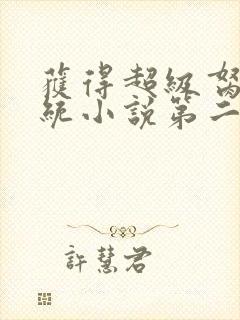 獲得超級
統小說第二
許慧君